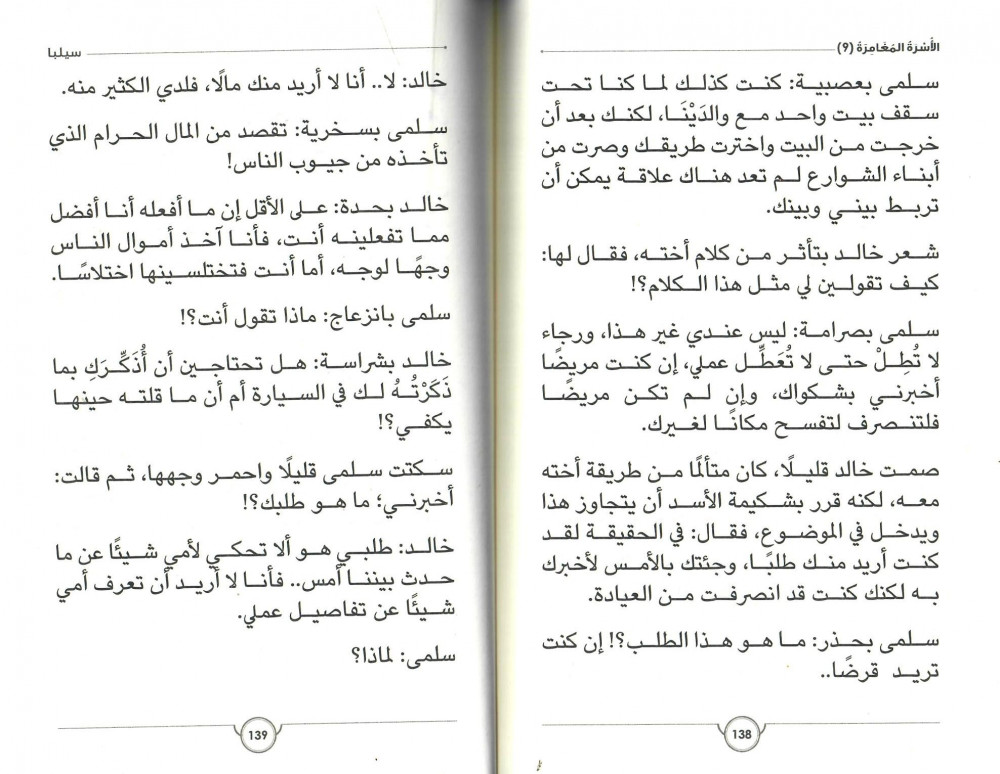 الأُسْرَةُ المُغَامِرَةُ (٩)
سلمى بعصبية: كنت كذلك لما كنا تحت
سقف بيت واحد مع والدَيْنَا، لكنك بعد أن
خرجت من البيت واخترت طريقك وصرت من
أبناء الشوارع لم تعد هناك علاقة يمكن أن
تربط بيني وبينك.
شعر خالد بتأثر من كلام أخته، فقال لها:
كيف تقولين لي مثل هذا الكلام؟!
سلمى بصرامة: ليس عندي غير هذا، ورجاء
لا تُطِلْ حتى لا تُعَطِّل عملي، إن كنت مريضًا
أخبرني بشكواك، وإن لم تكن مريضًا
فلتنصرف لتفسح مكانًا لغيرك.
صمت خالد قليلًا، كان متألمًا من طريقة أخته
معه، لكنه قرر بشكيمة الأسد أن يتجاوز هذا
ويدخل في الموضوع، فقال: في الحقيقة لقد
كنت أريد منك طلبًا، وجئتك بالأمس لأخبرك
به لكنك كنت قد انصرفت من العيادة.
سلمى بحذر: ما هو هذا الطلب؟! إن كنت
تريد قرضًا..
138
سيلبا
خالد: لا.. أنا لا أريد منك مالًا، فلدي الكثير منه.
سلمى بسخرية: تقصد من المال الحرام الذي
تأخذه من جيوب الناس!
خالد بحدة: على الأقل إن ما أفعله أنا أفضل
مما تفعلينه أنت، فأنا آخذ أموال الناس
وجهًا لوجه، أما أنت فتختلسينها اختلاسًا.
سلمى بانزعاج: ماذا تقول أنت؟!
خالد بشراسة: هل تحتاجين أن أُذَكِّرَكِ بما
ذَكَرْتُهُ لك في السيارة أم أن ما قلته حينها
يكفي؟!
سكتت سلمى قليلًا واحمر وجهها، ثم قالت:
أخبرني؛ ما هو طلبك؟!
خالد: طلبي هو ألا تحكي لأمي شيئًا عن ما
حدث بيننا أمس.. فأنا لا أريد أن تعرف أمي
شيئًا عن تفاصيل عملي.
سلمى: لماذا؟
139